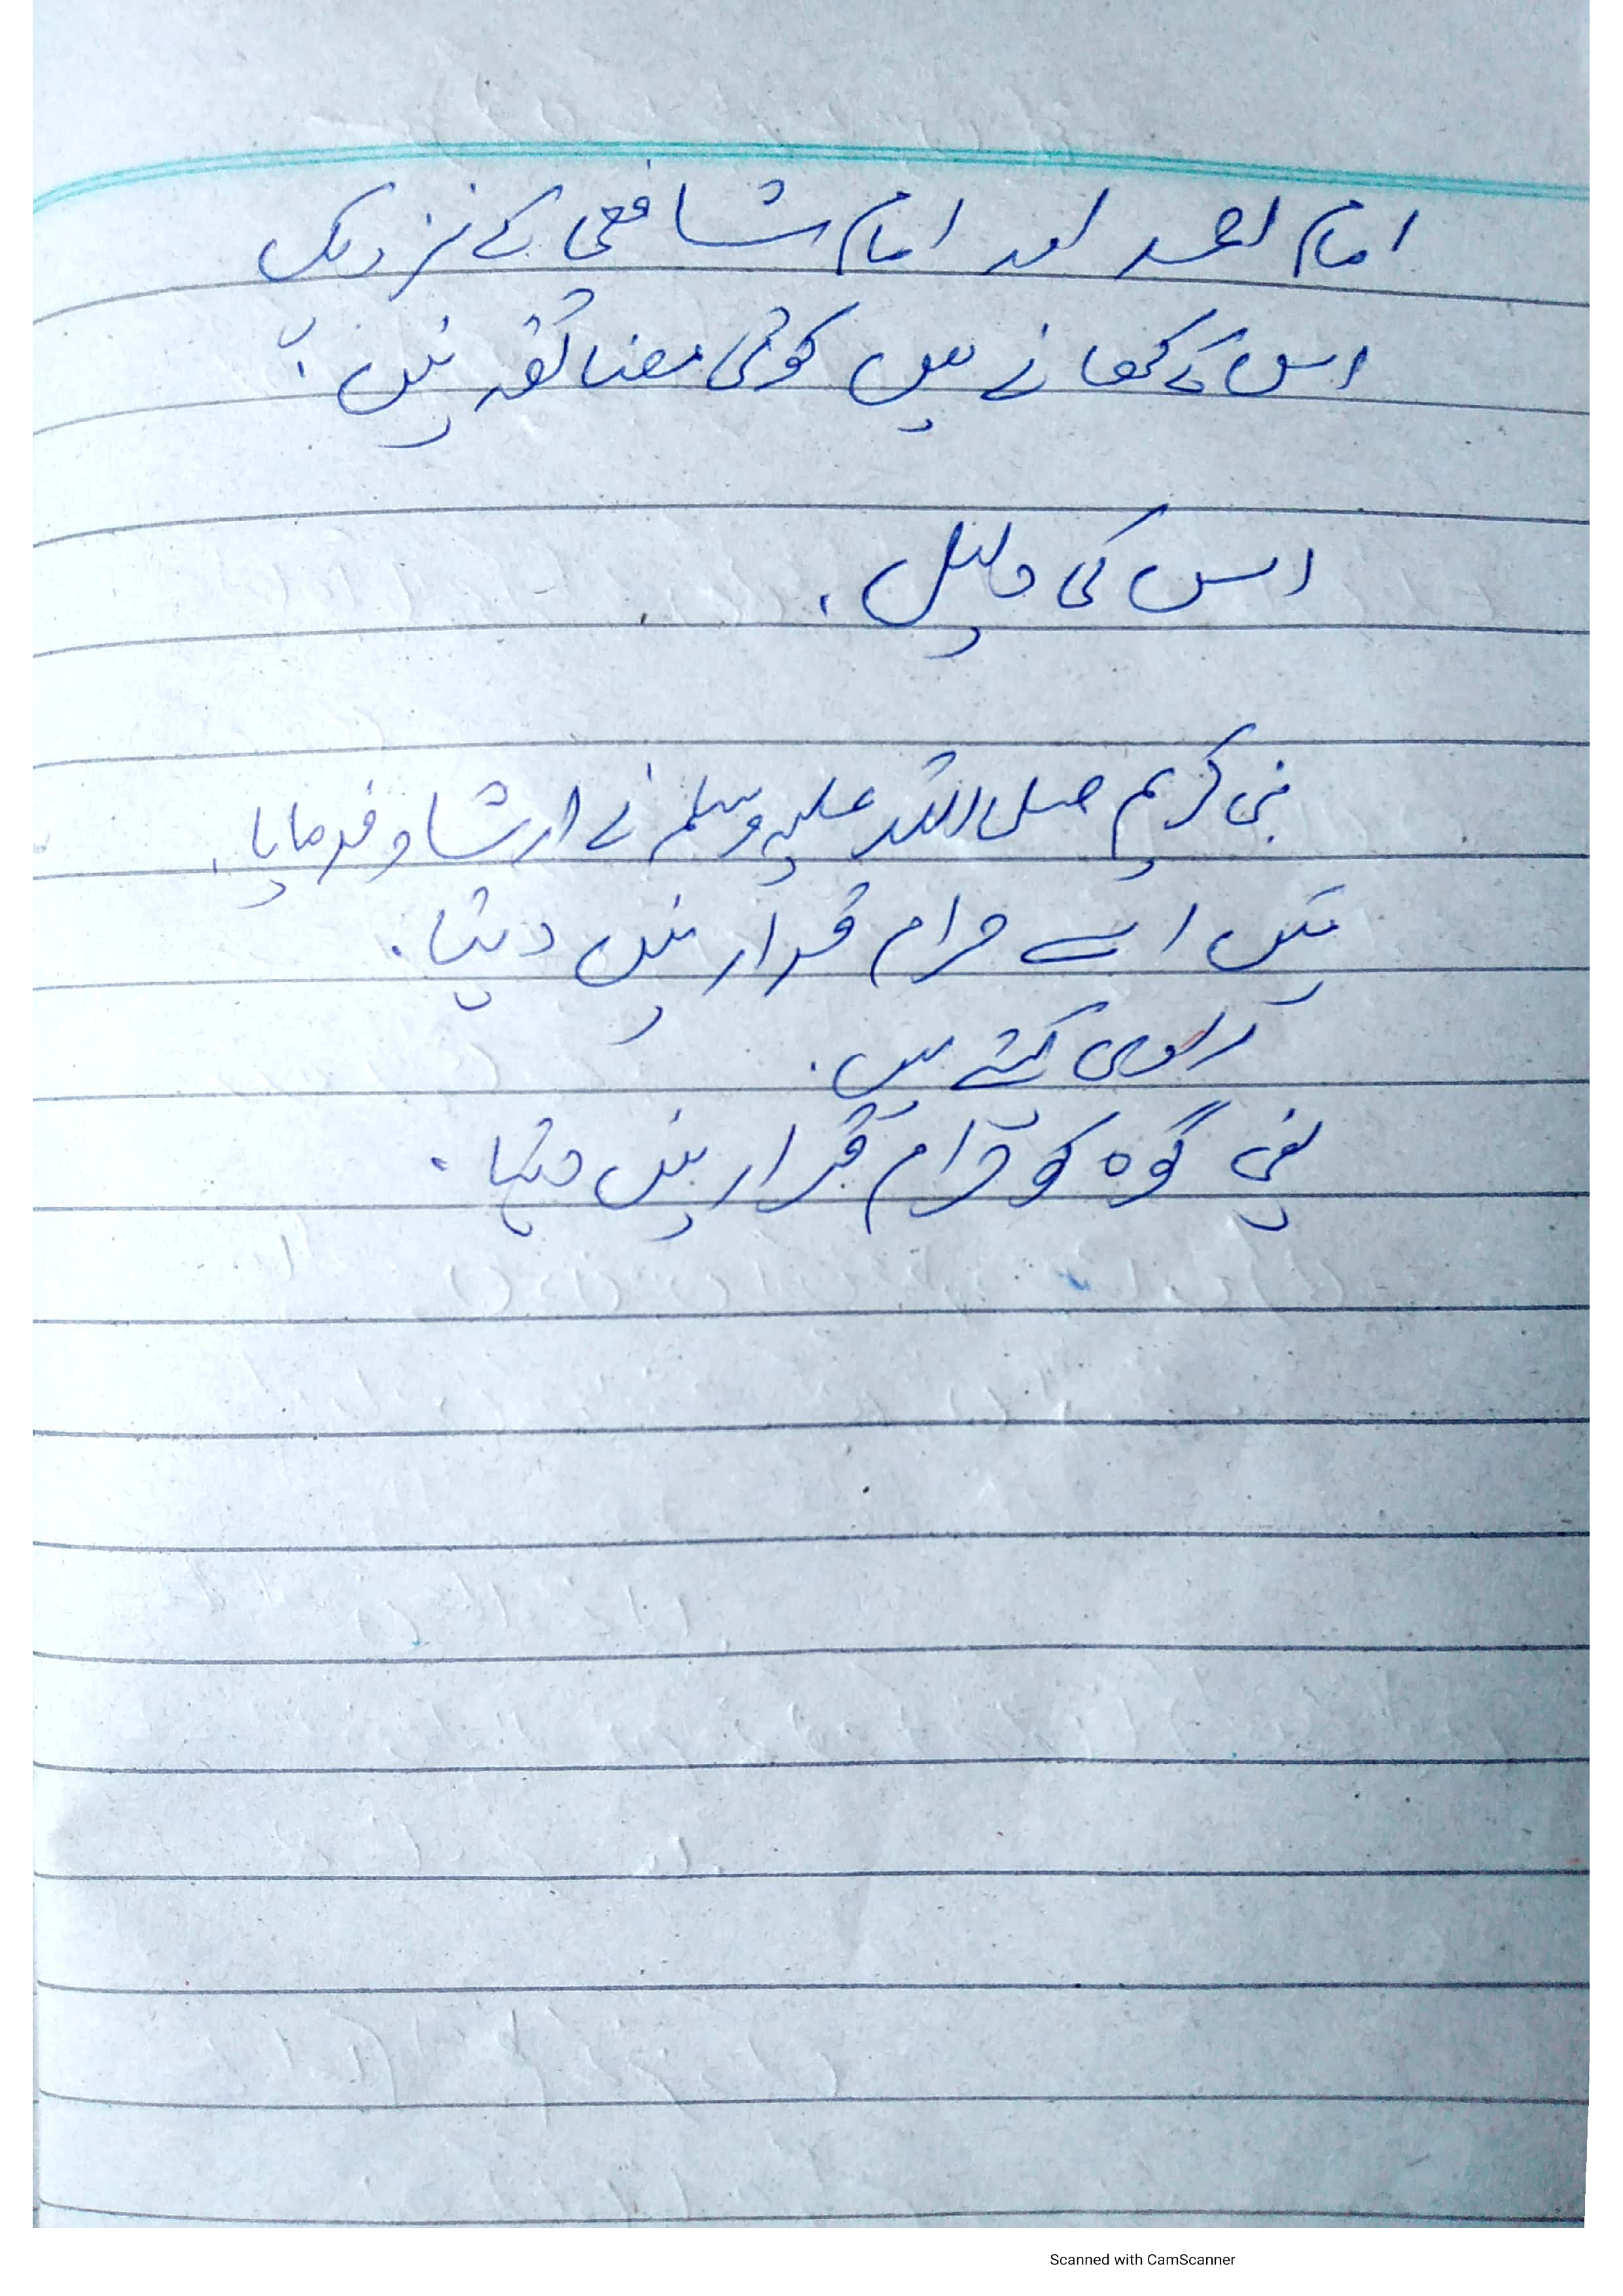 امام احمد اور امام شافعی کے نزدیک
اس کے کھانے میں کوئی مضائقہ نہیں:
اس کی دلیل.
نبی کریم صلی اللہ علیہ وسلم نے ارشاد فرمایا.
میں اسے حرام قرار نہیں دیتا.
راوی کہتے ہیں.
یعنی گوہ کو حرام قرار نہیں دیتا.
Scanned with CamScanner